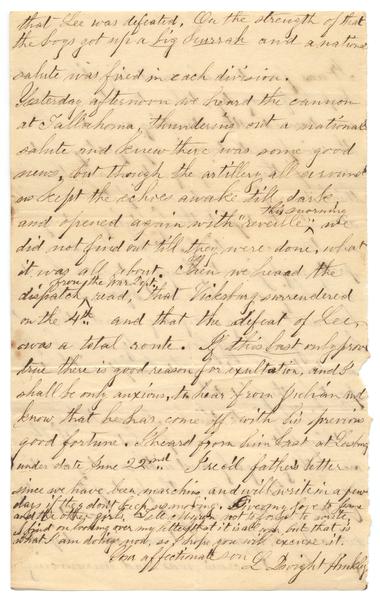 that Lee was defeated. On the strength of that
the boys got up a big Hurrah and a national
salute was fired in each division.
Yesterday afternoon we heard the cannon
at Tallahoma, thundering out a national
salute and knew there was some good
news, but though the artillery all around
us kept the echoes awake till dark
and opened again with "reveille" this morning, we
did not find out till they were done, what
it was all about. Then we heard the
dispatch from the War Dept. read, that Vicksburg surrendered
on the 4th and that the defeat of Lee,
was a total route. If this last only prove
true there is good reason for exultation, and I
shall be only anxious, to hear from and
know that he has come off with his previous
good fortune. I heard from him last at
under date June 22nd. I recd father's letter
since we have been marching and will write in a few
days if they don't keep us moving. Give my love to
and the other girls. Tell not to
I find on looking over my letter that it is all but that is
what I am doing now, so I hope you will excuse it.
Your affectionate son L Dwight